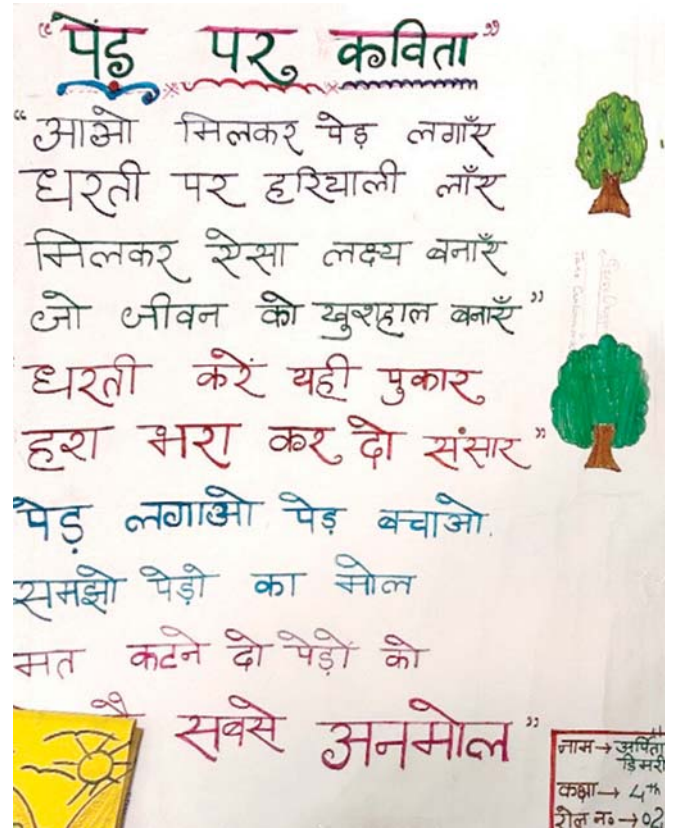 “पेड़ पर कविता”
“आओ मिलकर पेड़ लगाएँ
धरती पर हरियाली लाँए
मिलकर ऐसा लक्ष्य बनाएँ
जो जीवन को खुशहाल बनाएँ”
धरती करें यही पुकार
हरा भरा कर दो संसार”
पेड़ लगाओ पेड़ बचाओ.
समझो पेड़ो का मोल
मत कटने दो पेड़ों को
सबसे अनमोल”
नाम → अर्पिता
डिमरी
कक्षा → 4th
रोल न० → 02